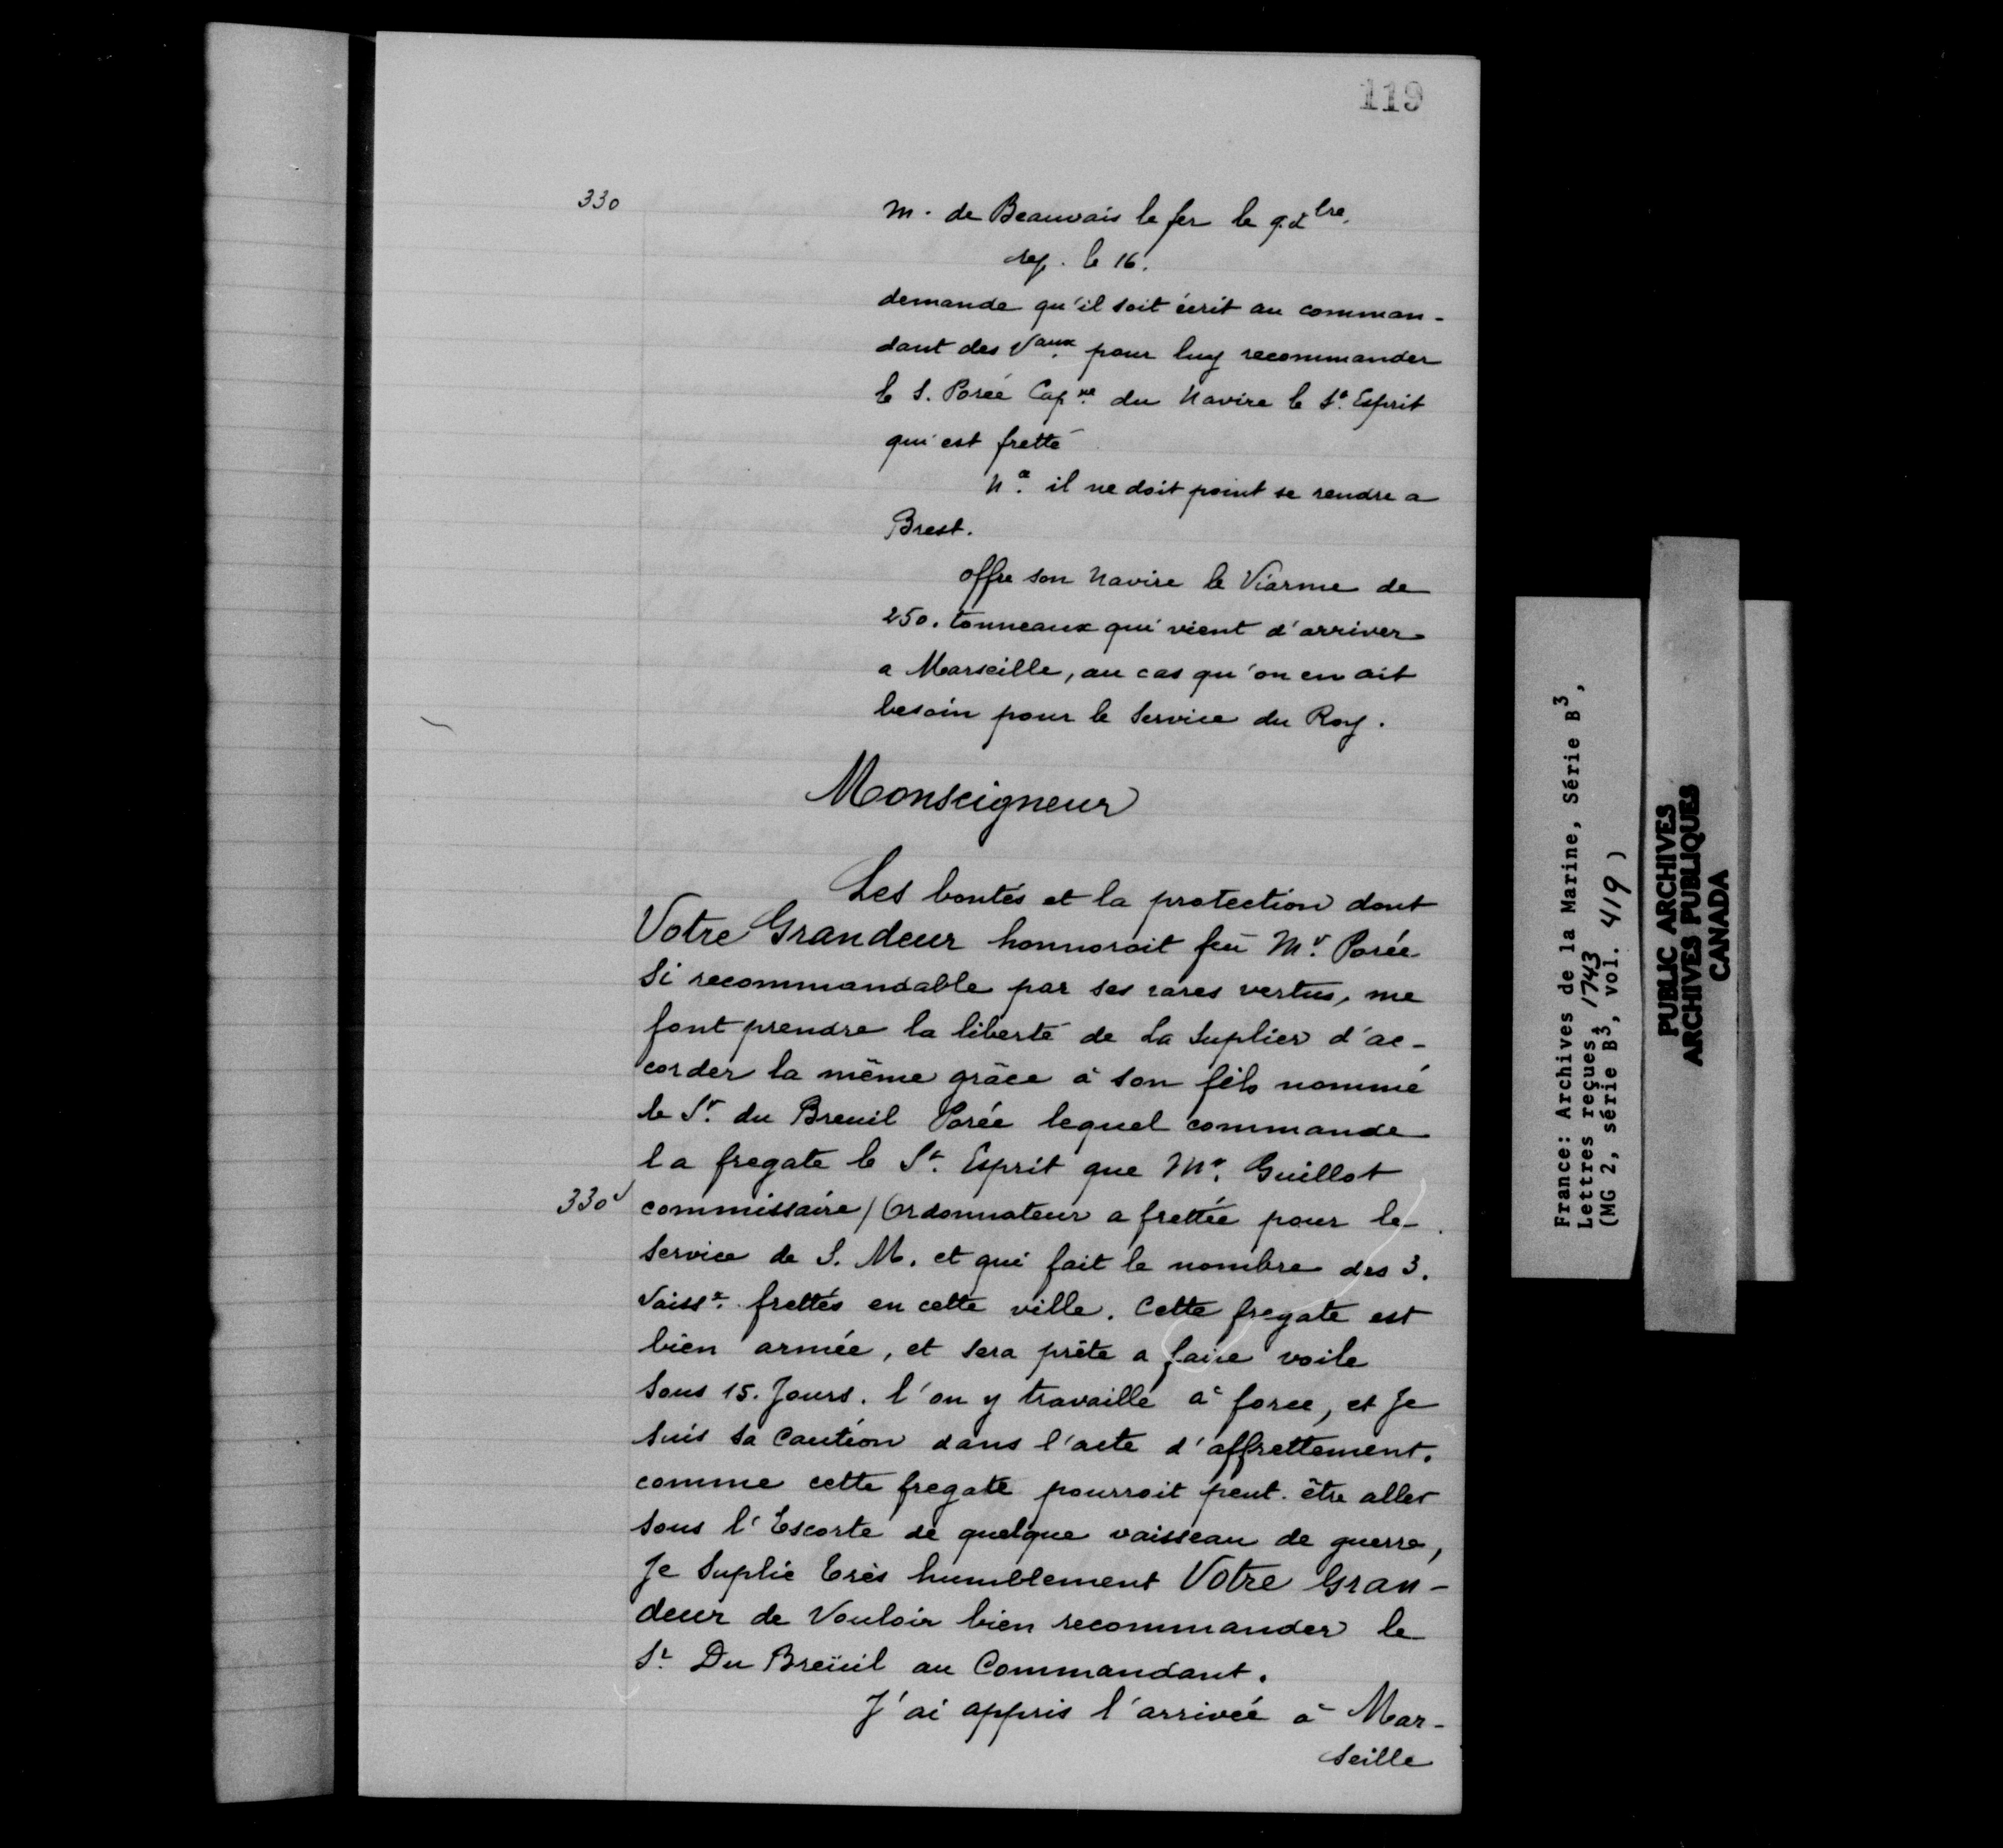 119
330
M. de Beauvais le fer le 9. d^bre.
rep. le 16.
demande qu'il soit écrit au comman-
dant des V^aux. pour luy recommander
le S. Porée Cap^ne du Navire le S^t. Esprit
qui est fretté
N^a. il ne doit point se rendre a
Brest.
offre son Navire le Viarme de
250. tonneaux qui vient d'arriver
a Marseille, au cas qu'on en ait
besoin pour le Service du Roy.
Monseigneur
Les bontés et la protection dont
Votre Grandeur honnoroit feu M^r. Porée
Si recommandable par ses rares vertus, me
font prendre la liberté de La Suplier d'ac-
corder la même grâce à son fils nommé
le S^r. du Breuil Porée lequel commande
la fregate le S^t. Esprit que M^r. Guillot
330^v commissaire / Ordonnateur a frettée pour le
Service de S. M. et qui fait le nombre des 3.
Vaiss^x. frettés en cette ville. Cette fregate est
bien armée, et sera prête a faire voile
Sous 15. Jours. l'on y travaille à force, et Je
Suis Sa Caution dans l'acte d'affrettement.
comme cette fregate pourroit peut-être aller
sous l'Escorte de quelque vaisseau de guerre,
Je Suplie très humblement Votre Gran-
deur de Vouloir bien recommander le
S^r. Du Breüil au Commandant.
J'ai appris l'arrivée à Mar-
seille
France: Archives de la Marine, Série B3,
Lettres reçues, 1743
(MG 2, série B3, vol. 419)
PUBLIC ARCHIVES
ARCHIVES PUBLIQUES
CANADA